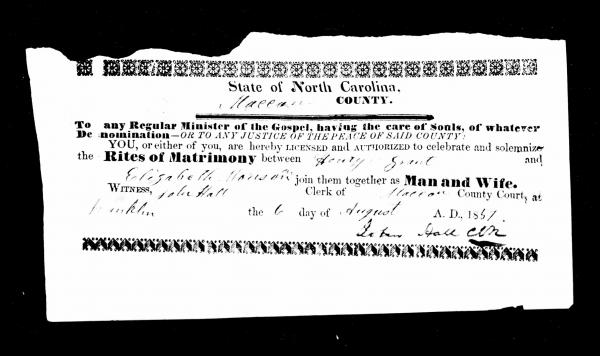 State of North Carolina,
Maccan COUNTY.
To any Regular Minister of the Gospel, having the care of Souls, of whatever
De nomination—OR TO ANY JUSTICE OF THE PEACE OF SAID COUNTY:
YOU, or either of you, are hereby LICENSED and AUTHORIZED to celebrate and solemnize
the Rites of Matrimony between Henry Grant and
Elizabeth join them together as Man and Wife.
WITNESS, John Hall Clerk of Maccan County Court, at
Franklin the 6 day of August A. D., 1851.
John Hall Clk